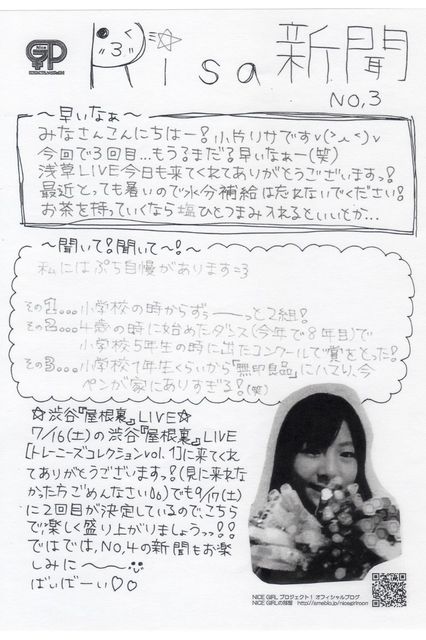 Nice
GP
Risa新聞
NO,3
〜早いなぁ〜
みなさんこんにちはー!小片リサですv(>_<)v
今回で3回目…もうるまだる早いなぁー(笑)
浅草LIVE今日も来てくれてありがとうございますっ!
最近とっても暑いので水分補給は忘れないでください!
お茶を持っていくなら塩ひとつまみ入れるといいとか…
〜聞いて!聞いて〜!〜
私にはぷち自慢があります=3
その1…小学校の時からずぅーーっと2組!
その2…4歳の時に始めたダンス(今年で8年目)で
小学校5年生の時に出たコンクールで賞をとった!
その3…小学校1年生くらいから『無印良品』にハマり、今
ペンが家にありすぎる!(笑)
☆渋谷『屋根裏』LIVE☆
7/16(土)の渋谷『屋根裏』LIVE
[トレーニーズコレクションvol.1]に来てくれ
てありがとうございますっ!(見に来れな
かった方ごめんなさい)でも9/17(土)
に2回目が決定しているので、こちら
で楽しく盛り上がりましょうっっ!!
ではでは、NO,4の新聞もお楽
しみに〜
ばいばーい♡♡
NICE GIRL プロジェクト! オフィシャルブログ
NICE GIRLの部屋 http://ameblo.jp/nicegirlroom